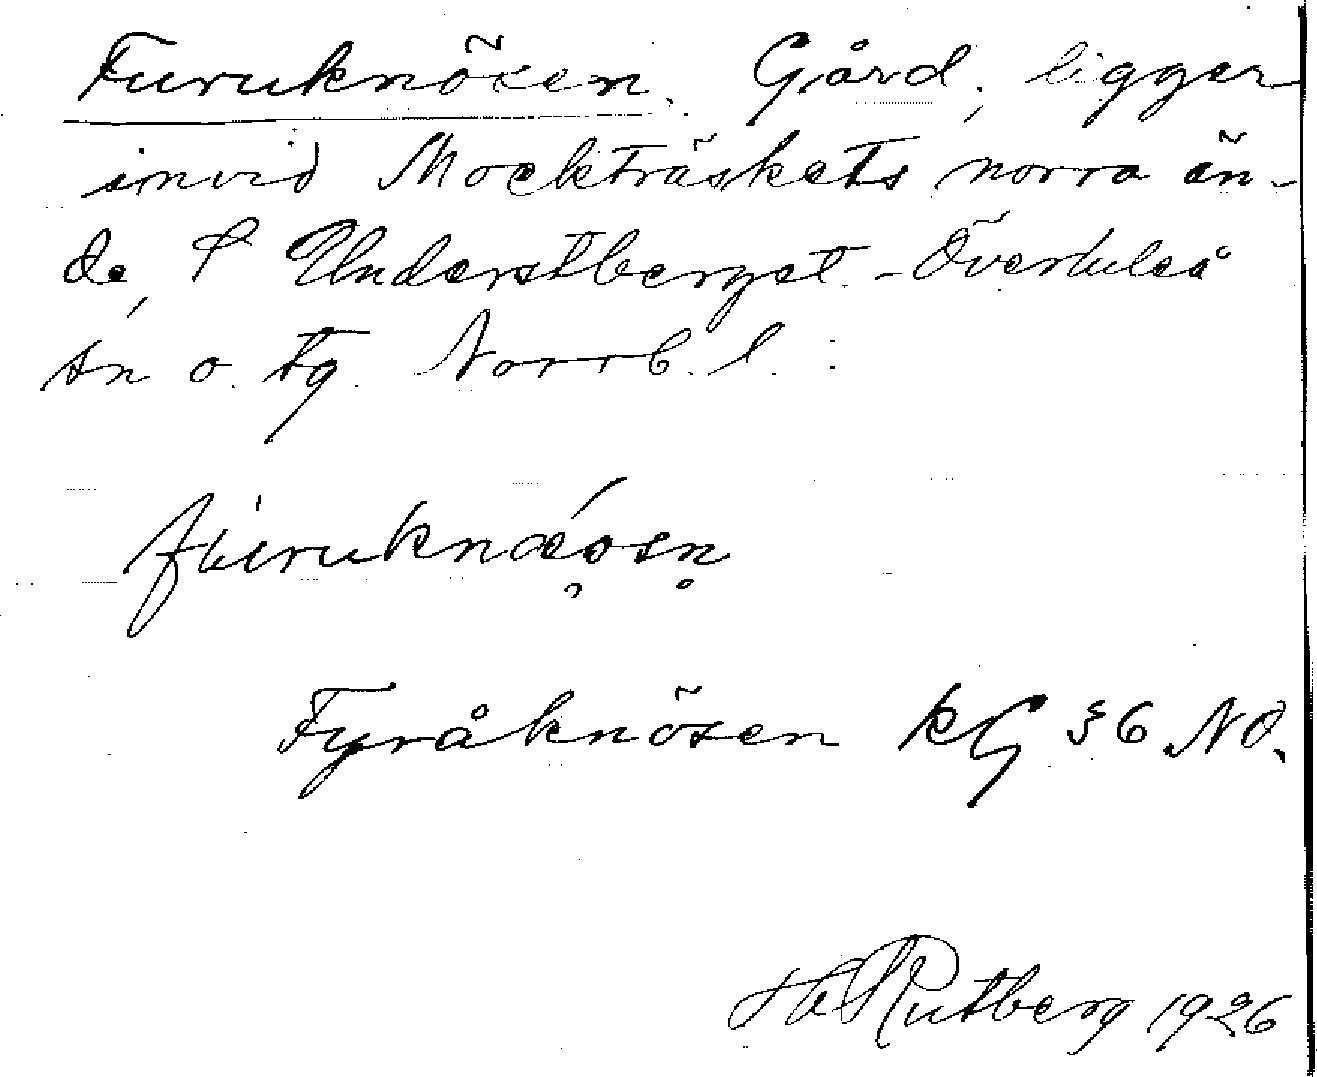 Furuknösen. Gård, ligger
invid Mockträskets norra än-
de, S Understberget. - Överluleå
sn o. tg. Norrb. l.
furuknæosn
Fyråknösen kG §6 NO.
Hd Rutberg 1926